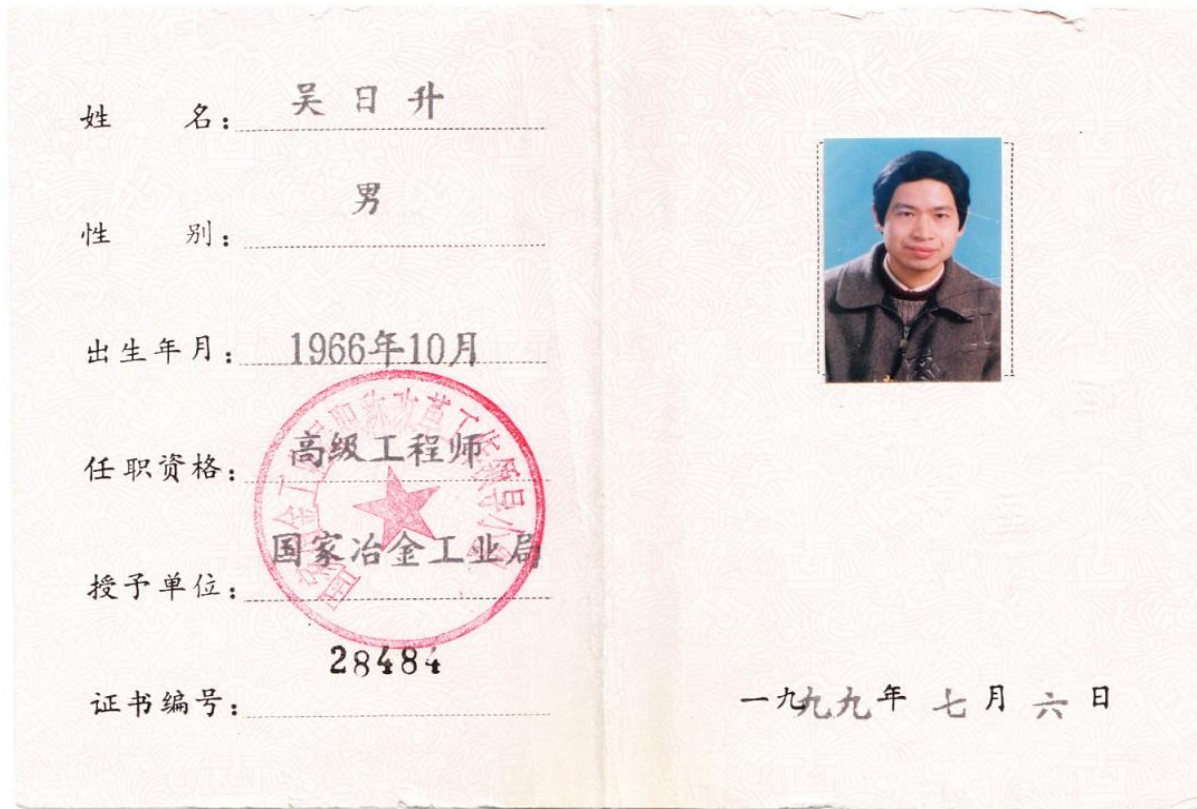 姓 名：吴日升
性 别：男
出生年月：1966年10月
任职资格：高级工程师
授予单位：国家冶金工业局
证书编号：28484
一九九九年七月六日